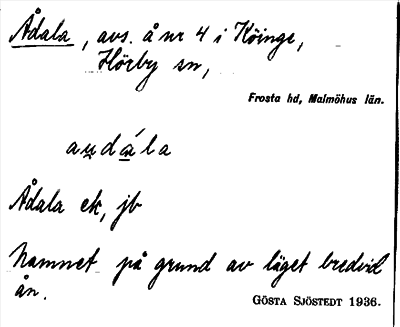 Ådala, avs. å nr 4 i Köinge,
Hörby sn,
Frosta hd, Malmöhus län.
audála
Ådala ek, jb
Namnet på grund av läget bredvid
ån.
GÖSTA SJÖSTEDT 1936.